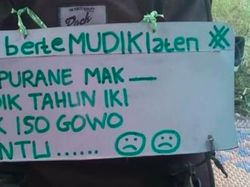 berteMUDIKlaten
PURANE MAK
DIK TAHUN IKI
K ISO GOWO
NTU......